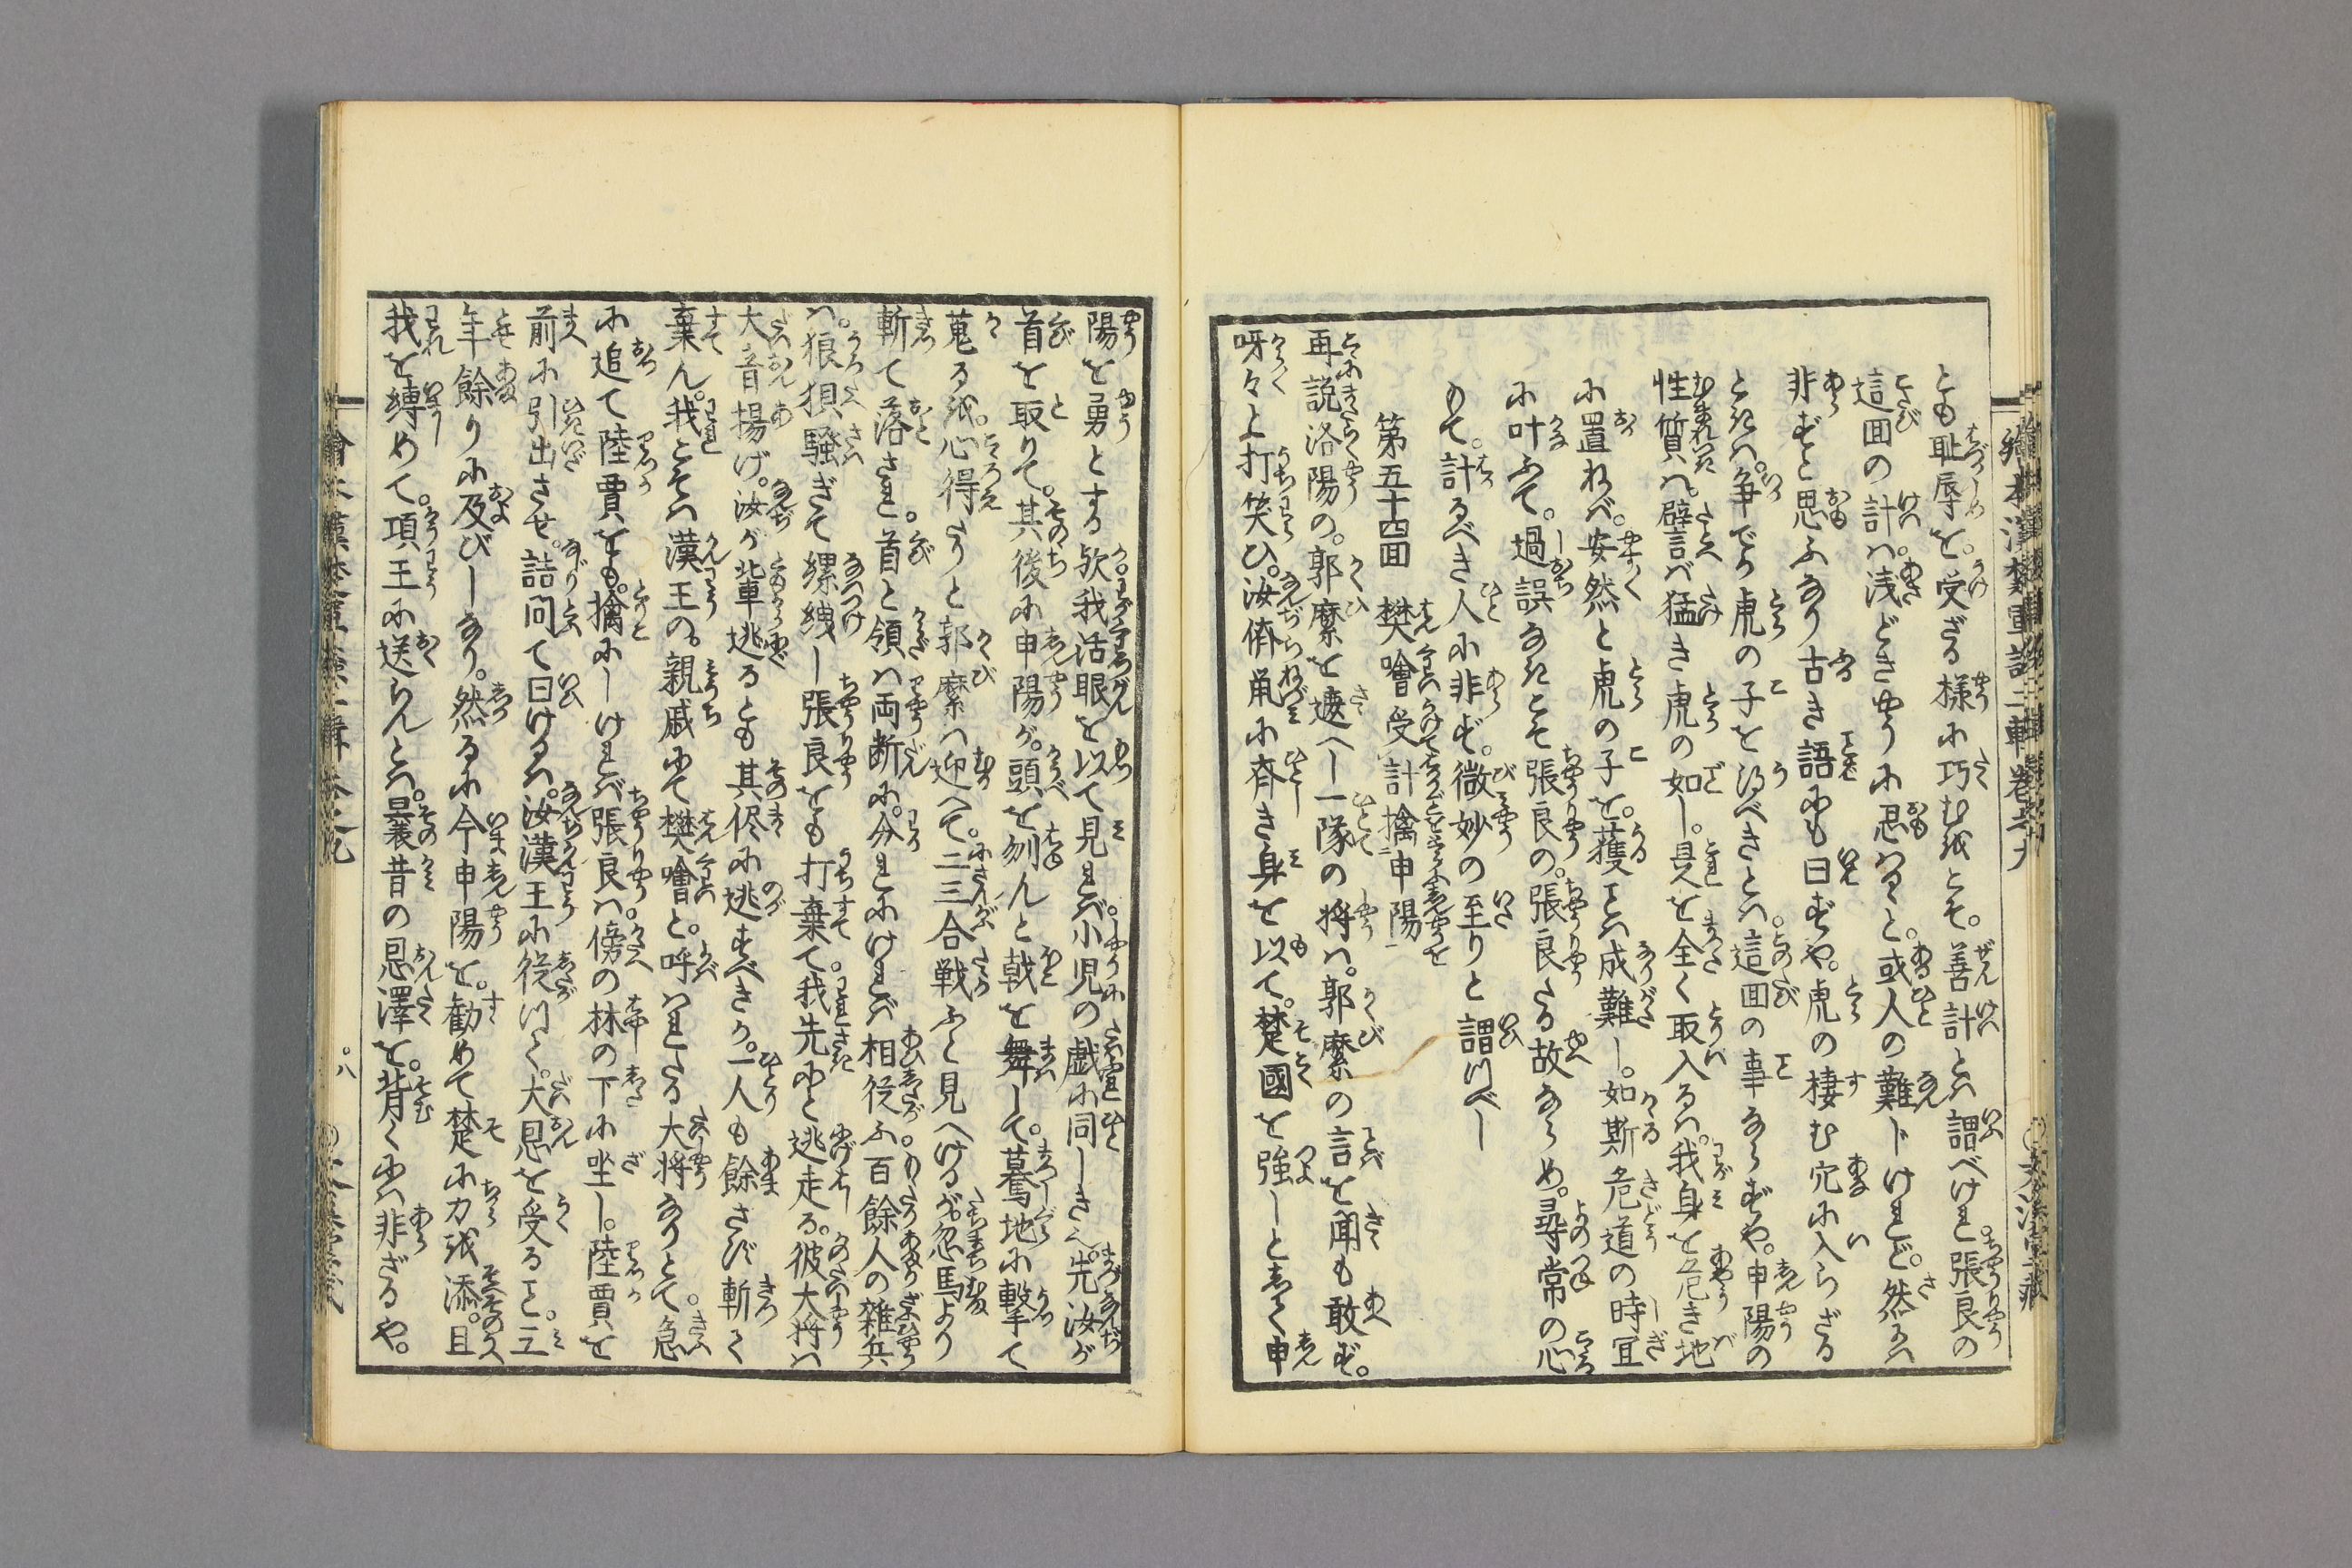 とも耻辱を。受ざる様に巧むをこそ。善計とは謂べけれ張良の
這回の計は。浅どきやうに思はるゝと。或人の難ドけれど。然るは
非ずと思ふなり古き語にも曰ずや。虎の棲む穴に入らざる
ときは。争でか虎の子を得べきとは。這回の事ならずや。申陽の
性質は。譬言ば猛き虎の如し。是を全く取入るは。我身を危き地
に置ねば。安然と虎の子を。獲とは成難し。如斯危道の時宜
に叶ふて。過誤なきこそ張良の。張良たる故ならめ。尋常の心
もて。計るべき人に非ず。微妙の至りと謂つべし
第五十四回 樊噲受計擒申陽
再説洛陽の。郭縻を遶へし一隊の将は。郭縻の言を聞も敢ず。
呀々と打笑ひ。汝儕鼡に斉き身を以て。楚國を強しとして申
陽を勇とする欤我活眼を以て見れば。小児の戯に同しきぞ。先汝が
首を取りて。其後に申陽が。頭を刎んと戟を舞して。驀地に撃て
蒐るを。心得たりと郭縻は迎へて。二三合戦ふと見へけるが。忽馬より
斬て落され。首と領は両断に。分れにければ相従ふ百餘人の雑兵
は。狼狽騒ぎて縲絏し張良をも打棄て。我先にと逃走る。彼大将は
大音揚げ。汝が輩逃るとも其侭に逃すべきか。一人も餘さず斬て
棄ん。我こそは漢王の。親戚にて樊噲と。呼はれたる大将なりとて。急
に追て陸賈をも。擒にしければ張良は傍の林の下に坐し。陸賈を
前に引出させ。詰問て曰けるは。汝漢王に従つて。大恩を受ること。三
年餘りに及びしなり。然るに今申陽を。勧めて楚に力を添。且
我を縛めて。項王に送らんとは。曩昔の恩澤を。背くには非ざるや。